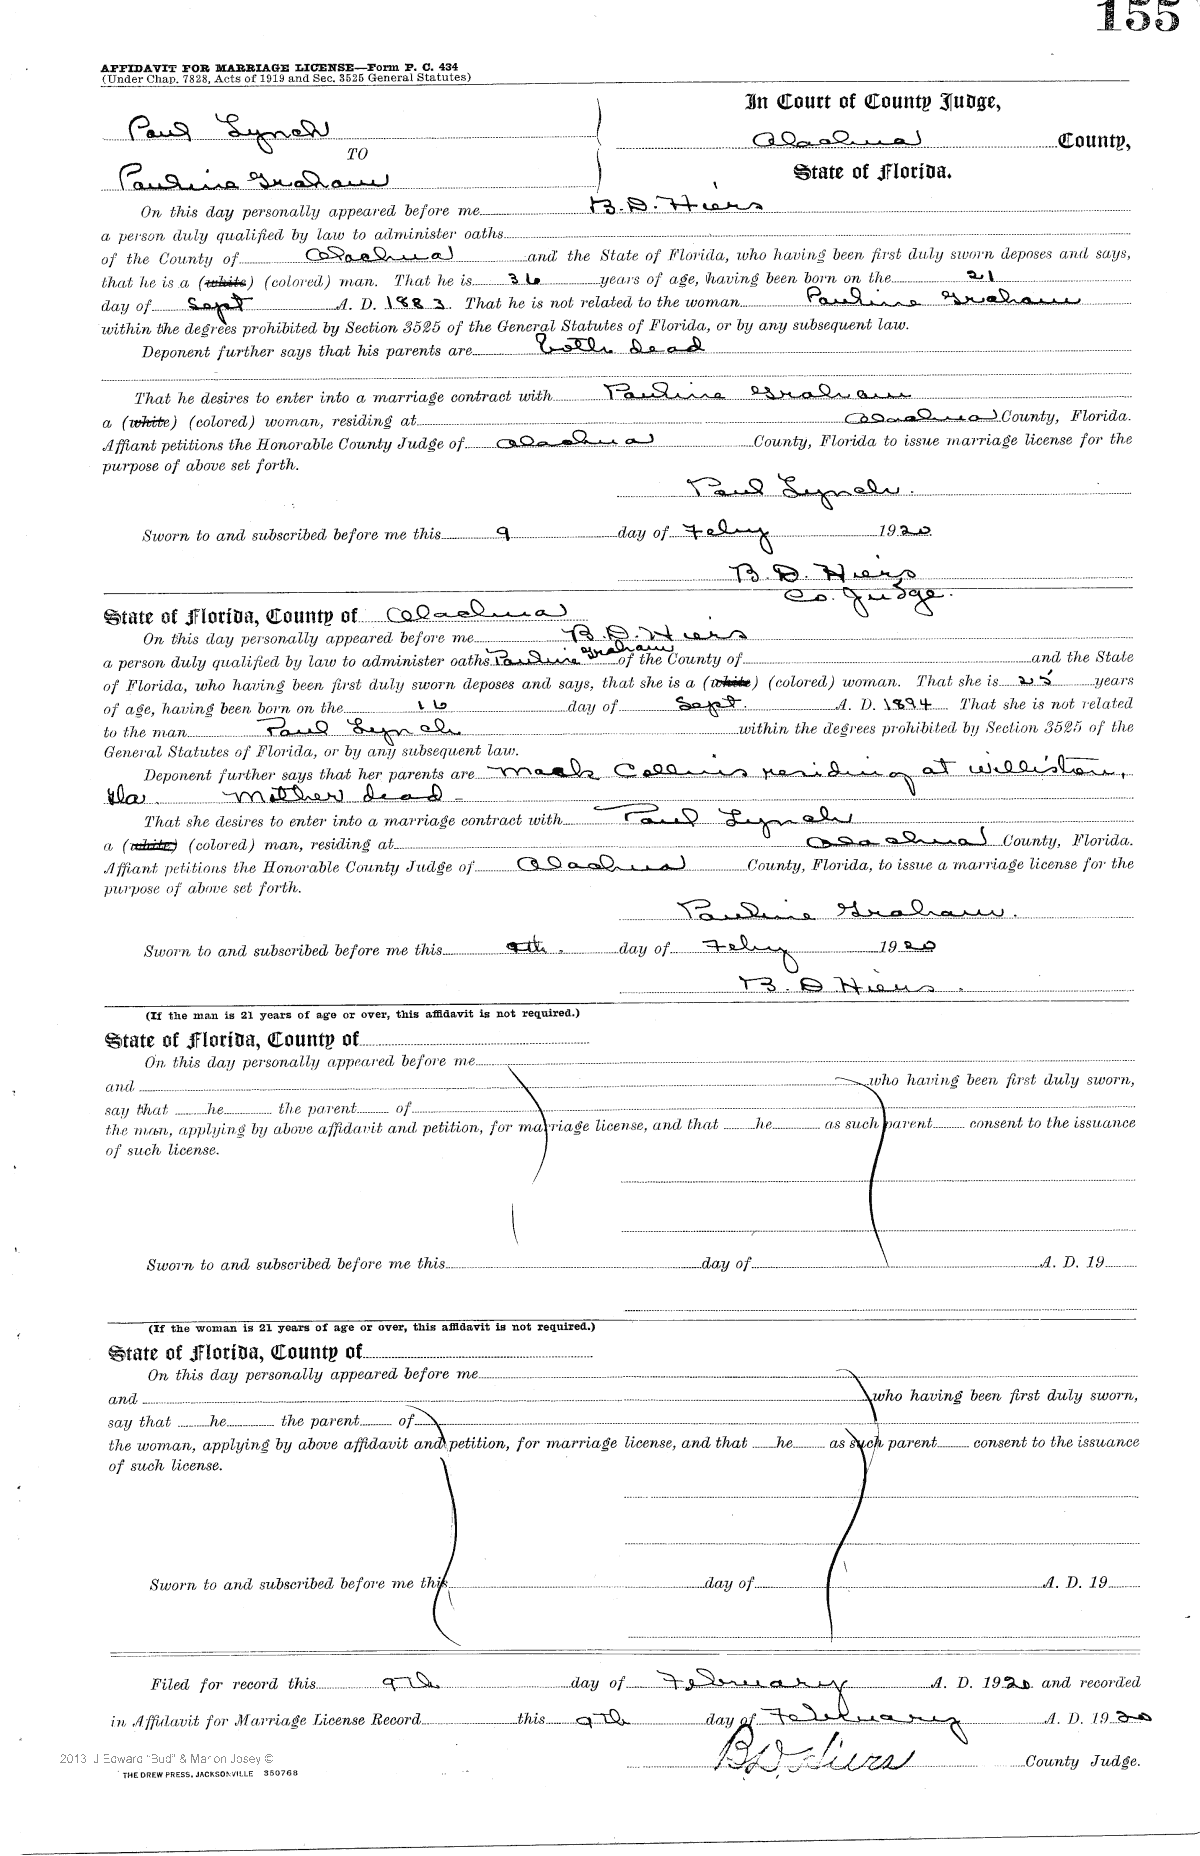 155
AFFIDAVIT FOR MARRIAGE LICENSE—Form P. C. 434
(Under Chap. 7828, Acts of 1919 and Sec. 3525 General Statutes)
In Court of County Judge,
Paul Lynch
Alachua County,
TO
State of Florida.
Pauline Graham
On this day personally appeared before me B. D. Hiers
a person duly qualified by law to administer oaths
of the County of Alachua and the State of Florida, who having been first duly sworn deposes and says,
that he is a (white) (colored) man. That he is 36 years of age, having been born on the 21
day of Sept A. D. 1883. That he is not related to the woman Pauline Graham
within the degrees prohibited by Section 3525 of the General Statutes of Florida, or by any subsequent law.
Deponent further says that his parents are both dead
That he desires to enter into a marriage contract with Pauline Graham
a (white) (colored) woman, residing at Alachua County, Florida.
Affiant petitions the Honorable County Judge of Alachua County, Florida to issue marriage license for the
purpose of above set forth.
Paul Lynch.
Sworn to and subscribed before me this 9 day of Feby 1920
B. D. Hiers
Co. Judge.
State of Florida, County of Alachua
On this day personally appeared before me B. D. Hiers
a person duly qualified by law to administer oaths Pauline Graham of the County of and the State
of Florida, who having been first duly sworn deposes and says, that she is a (white) (colored) woman. That she is 25 years
of age, having been born on the 16 day of Sept. A. D. 1894 That she is not related
to the man Paul Lynch within the degrees prohibited by Section 3525 of the
General Statutes of Florida, or by any subsequent law.
Deponent further says that her parents are Mack Collins residing at Williston,
Fla. Mother dead -
That she desires to enter into a marriage contract with Paul Lynch
a (white) (colored) man, residing at Alachua County, Florida.
Affiant petitions the Honorable County Judge of Alachua County, Florida, to issue a marriage license for the
purpose of above set forth.
Pauline Graham.
Sworn to and subscribed before me this 9th. day of Feby 1920
B. D Hiers.
(If the man is 21 years of age or over, this affidavit is not required.)
State of Florida, County of
On this day personally appeared before me
and who having been first duly sworn,
say that he the parent of
the man, applying by above affidavit and petition, for marriage license, and that he as such parent consent to the issuance
of such license.
Sworn to and subscribed before me this day of A. D. 19
(If the woman is 21 years of age or over, this affidavit is not required.)
State of Florida, County of
On this day personally appeared before me
and who having been first duly sworn,
say that he the parent of
the woman, applying by above affidavit and petition, for marriage license, and that he as such parent consent to the issuance
of such license.
Sworn to and subscribed before me this day of A. D. 19
Filed for record this 9th day of February A. D. 1920 and recorded
in Affidavit for Marriage License Record this 9th day of February A. D. 1920
2013 J Edward "Bud" & Marion Josey ©
B D Hiers County Judge.
THE DREW PRESS, JACKSONVILLE 350768